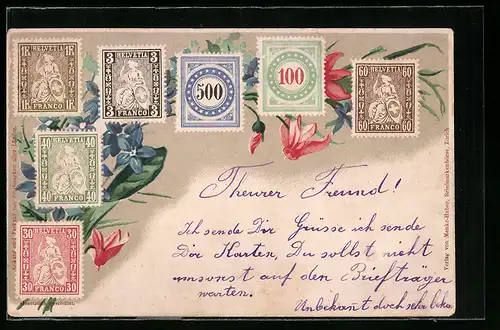 HELVETIA
1F. 1F.
1F. FRANCO 1F.
HELVETIA
3 3
3 FRANCO 3
500
100
HELVETIA
60 60
60 FRANCO 60
HELVETIA
40 40
40 FRANCO 40
HELVETIA
30 30
30 FRANCO 30
Theurer Freund!
Ich sende Dir Grüsse ich sende
Dir Karten, Du sollst nicht
umsonst auf den Briefträger
warten.
Unbekannt doch sehr
Verlag von Menke-Huber, Briefmarkenbörse, Zürich